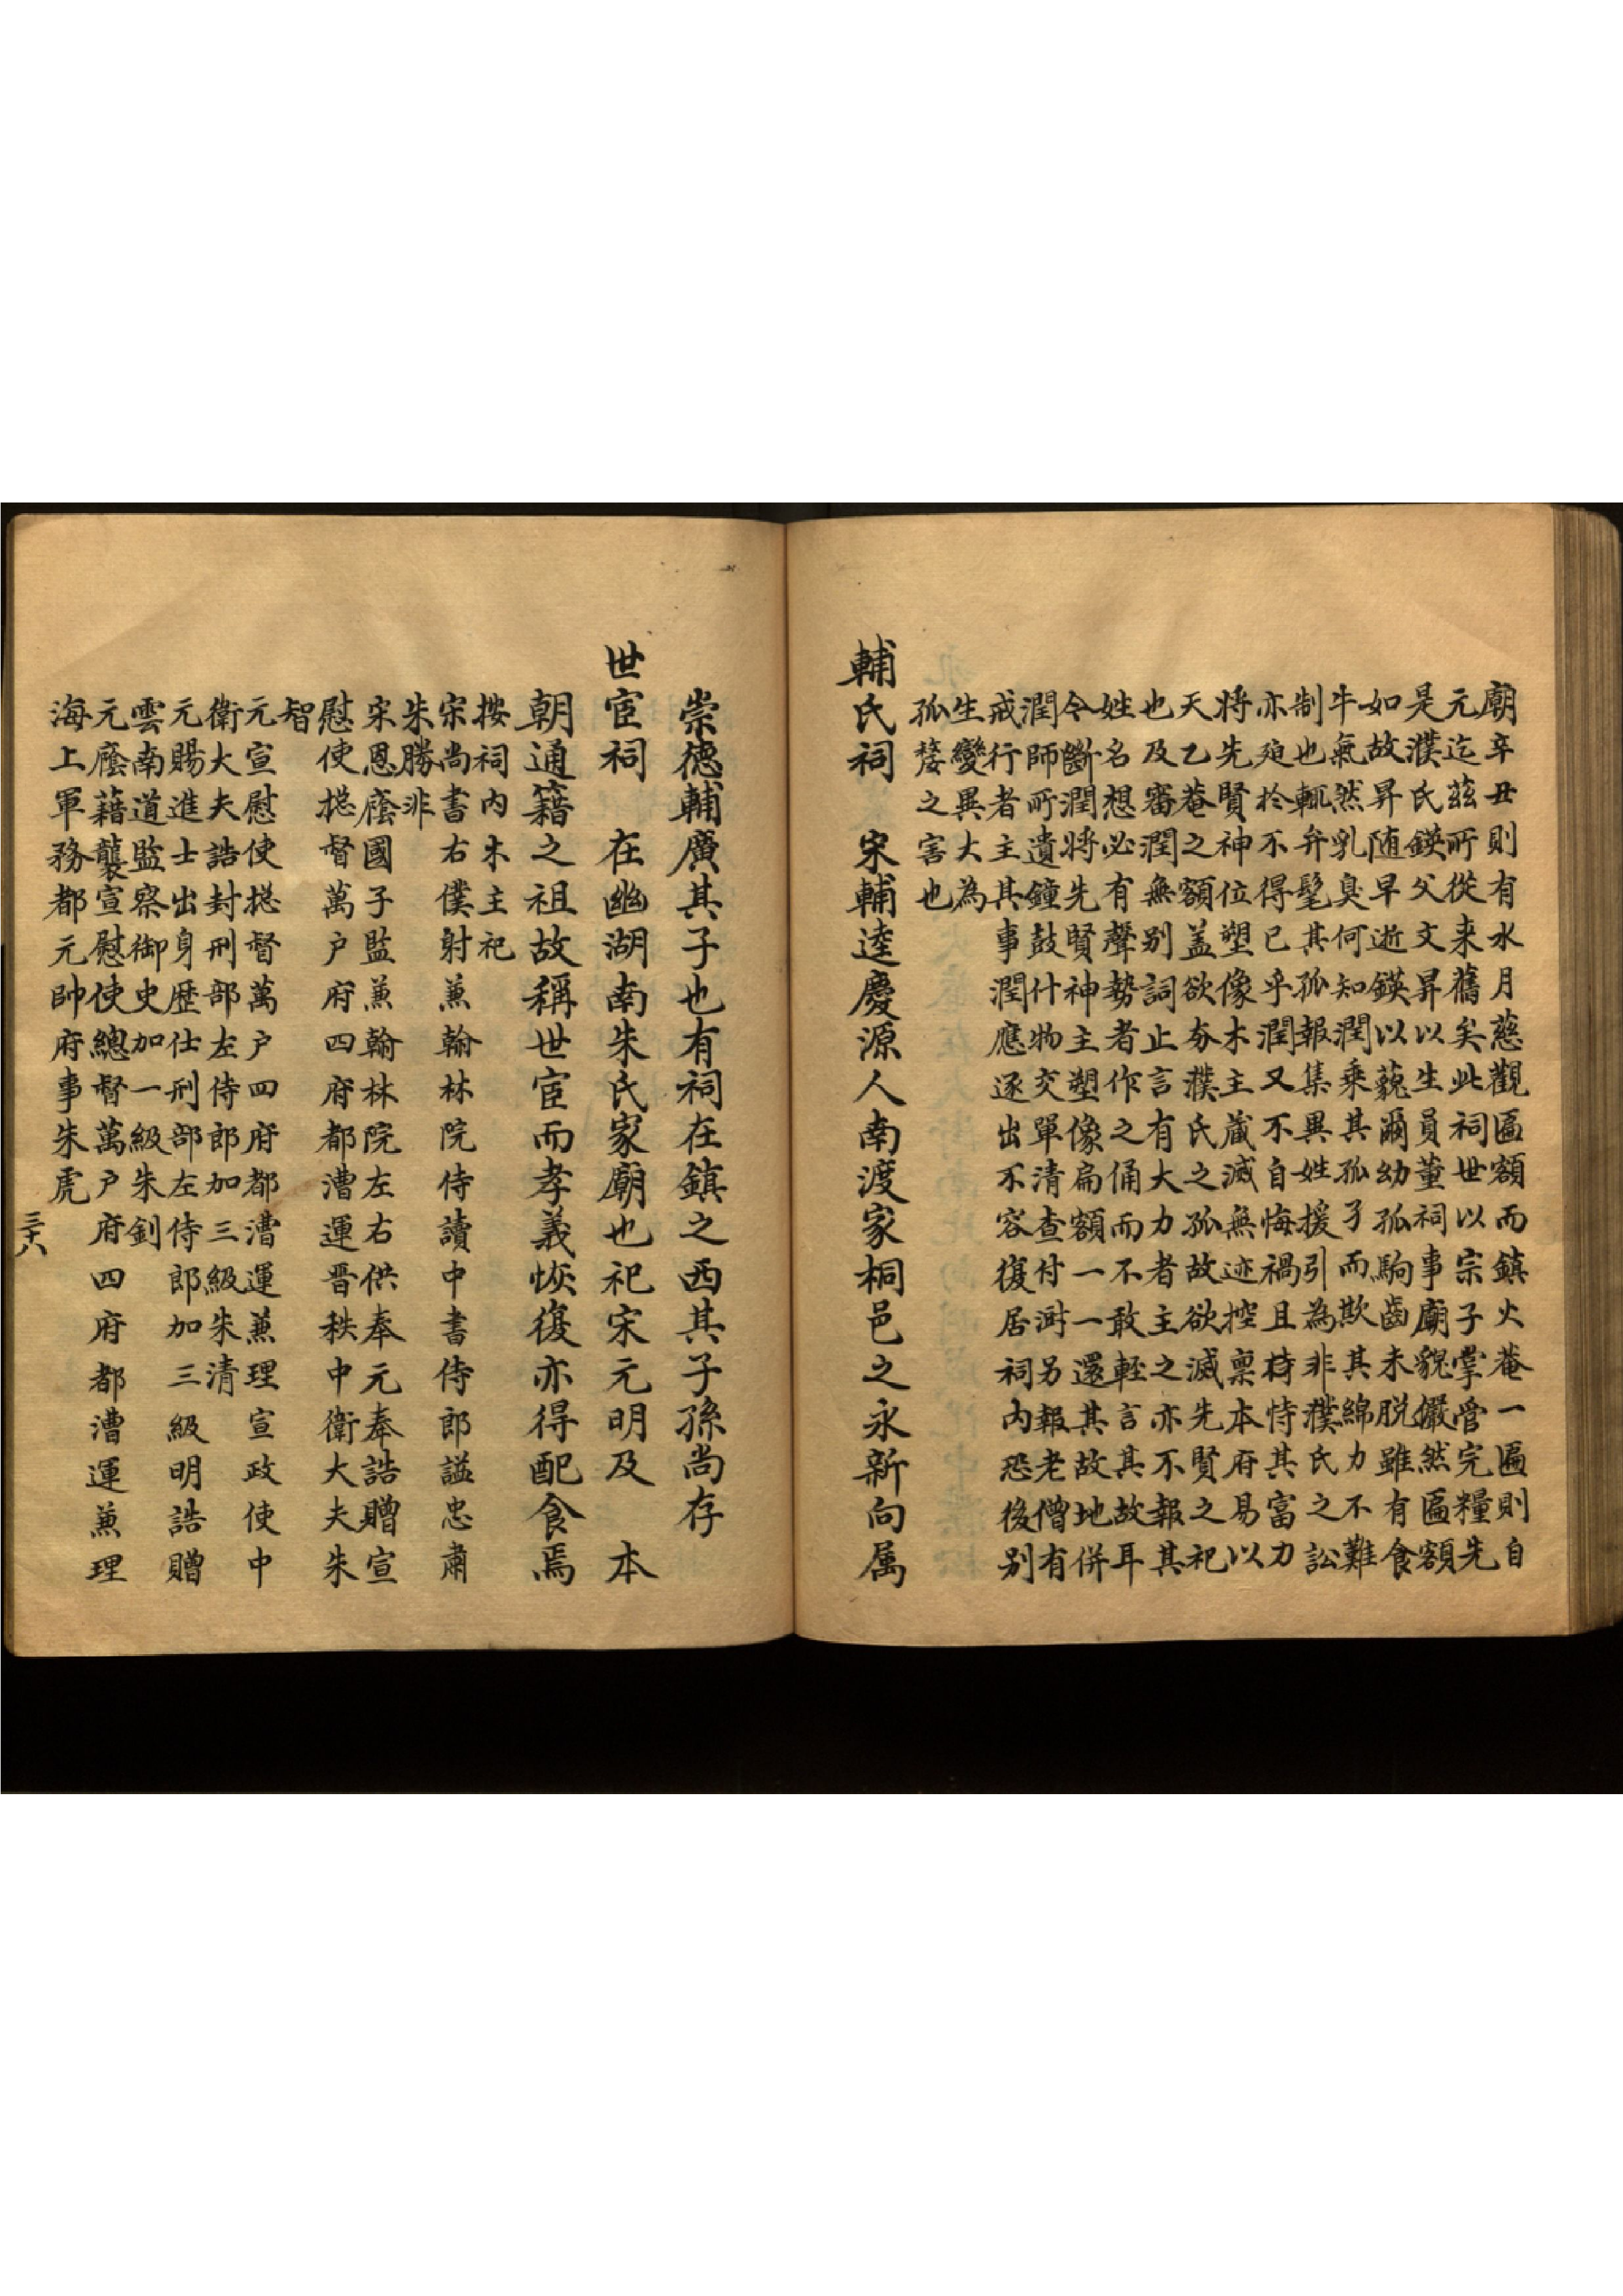 廟辛丑則有水月慈觀匾額而鎮火菴一匾則自
元迄茲所從来舊矣此祠世以宗子掌管完糧先
是濮氏鍈父文昇以生員董祠事廟貌儼然匾額
如故昇随早逝鍈以藐爾幼孤駒齒未脱雖有食
牛氣然乳臭何知潤乘其孤孑而欺其綿力不難
制也輒弁髦其孤報集異姓援引為非濮氏之訟
亦殆於不得已乎潤又不自悔禍且恃其富力
將先賢神位塑像木主蔵滅無迹控稟本府易以
天乙菴之額盖欲夯濮氏之孤故欲滅先賢之祀
也及審潤無别詞止言有大力者主之亦不報其
姓名想必有聲勢者作之俑而不敢輕言其故耳
令斷潤將先賢神主塑像扁額一一還其故地併
潤師所遺鐘鼓什物交單清查付澍另報老僧有
戒行者主其事潤應逐出不容復居祠内恐後别
生變異大為
孤嫠之害也
輔氏祠　宋輔逵慶源人南渡家桐邑之永新向属
崇德輔廣其子也有祠在鎮之西其子孫尚存
世宦祠　在幽湖南朱氏家廟也祀宋元明及　本
朝通籍之祖故稱世宦而孝義恢復亦得配食焉
按祠内木主祀
宋尚書右僕射兼翰林院侍讀中書侍郎謚忠肅
朱勝非
宋恩廕國子監兼翰林院左右供奉元奉誥贈宣
慰使摠督萬户府四府都漕運晋秩中衛大夫朱
智
元宣慰使摠督萬户四府都漕運兼理宣政使中
衛大夫誥封刑部左侍郎加三級朱清
元賜進士出身歷仕刑部左侍郎加三級明誥贈
雲南道監察御史加一級朱釗
元廕藉襲宣慰使總督萬户府四府都漕運兼理
海上軍務都元帥府事朱虎
三十八